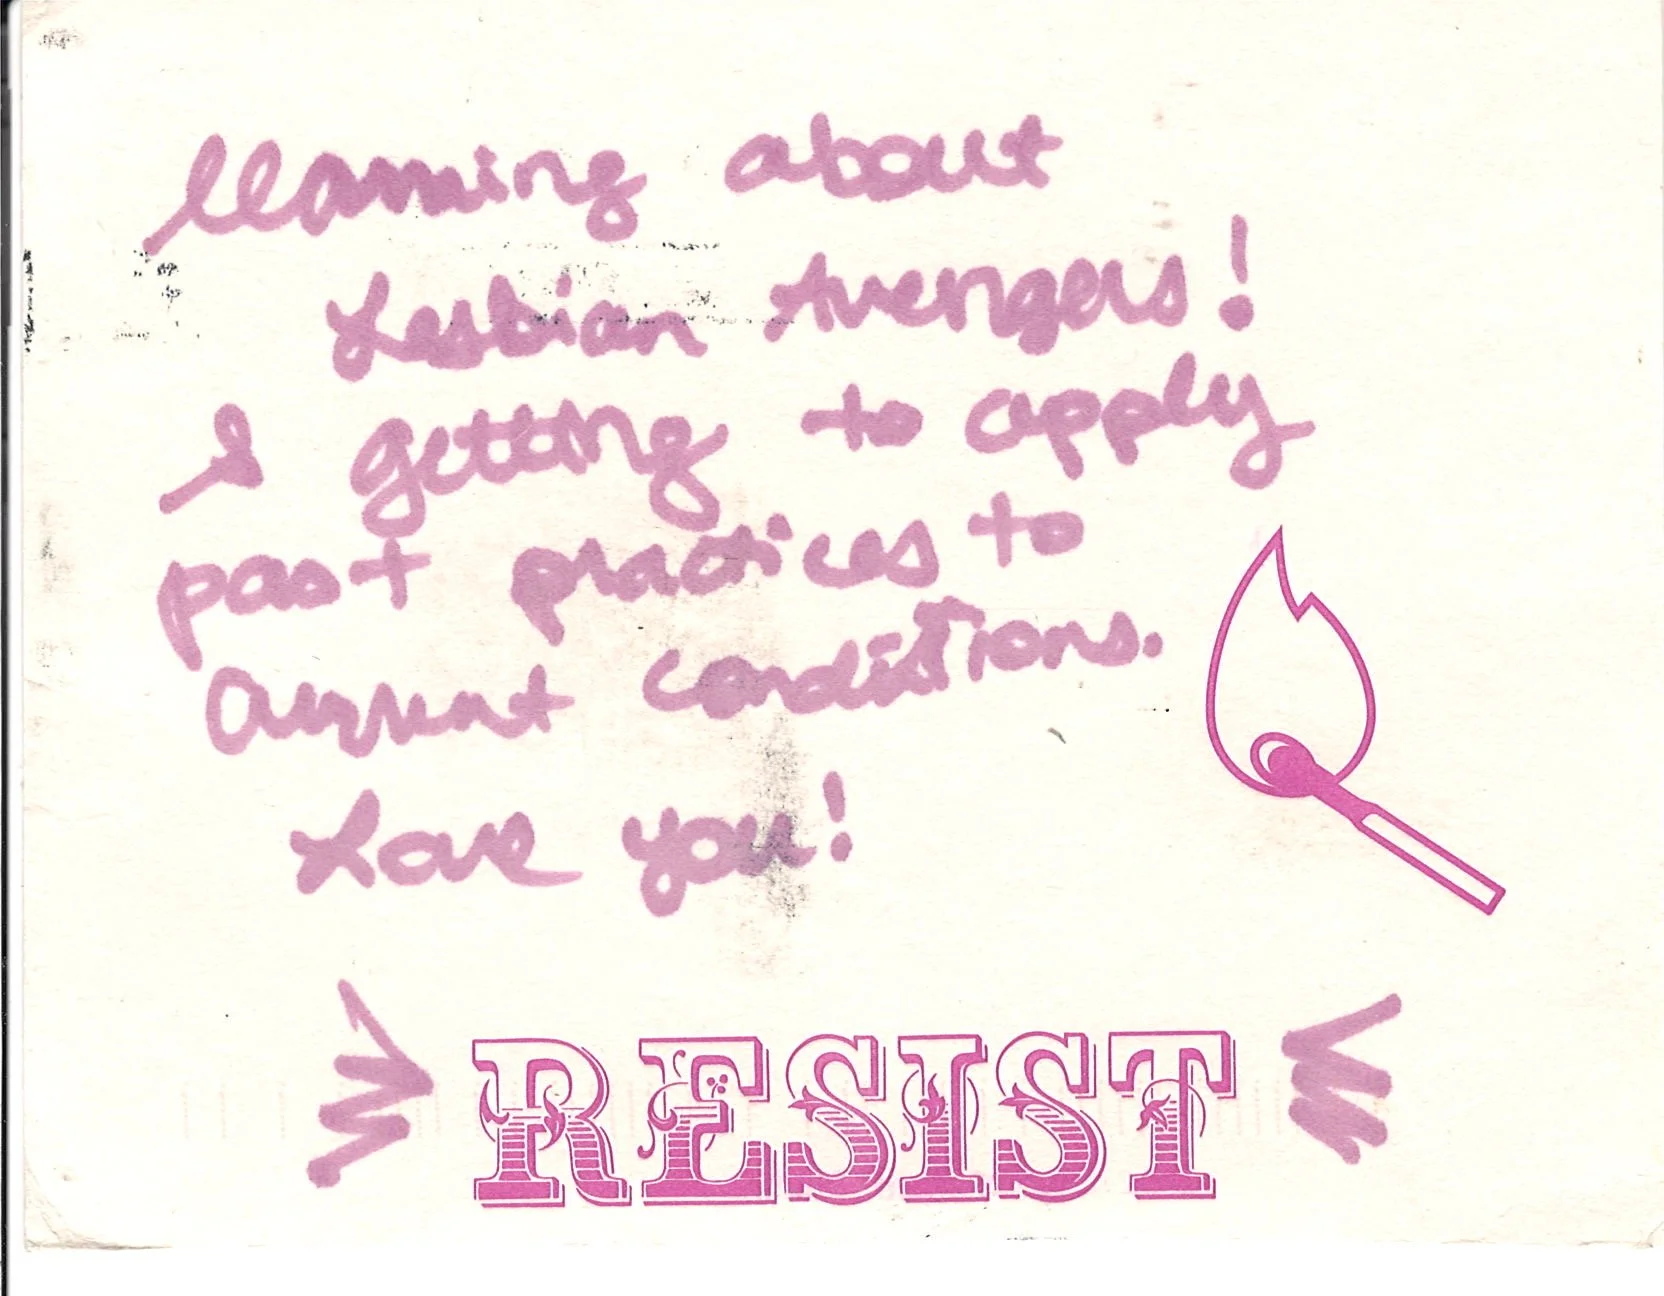 learning about
Lesbian Avengers!
& getting to apply
past practices to
current conditions.
Love you!
RESIST